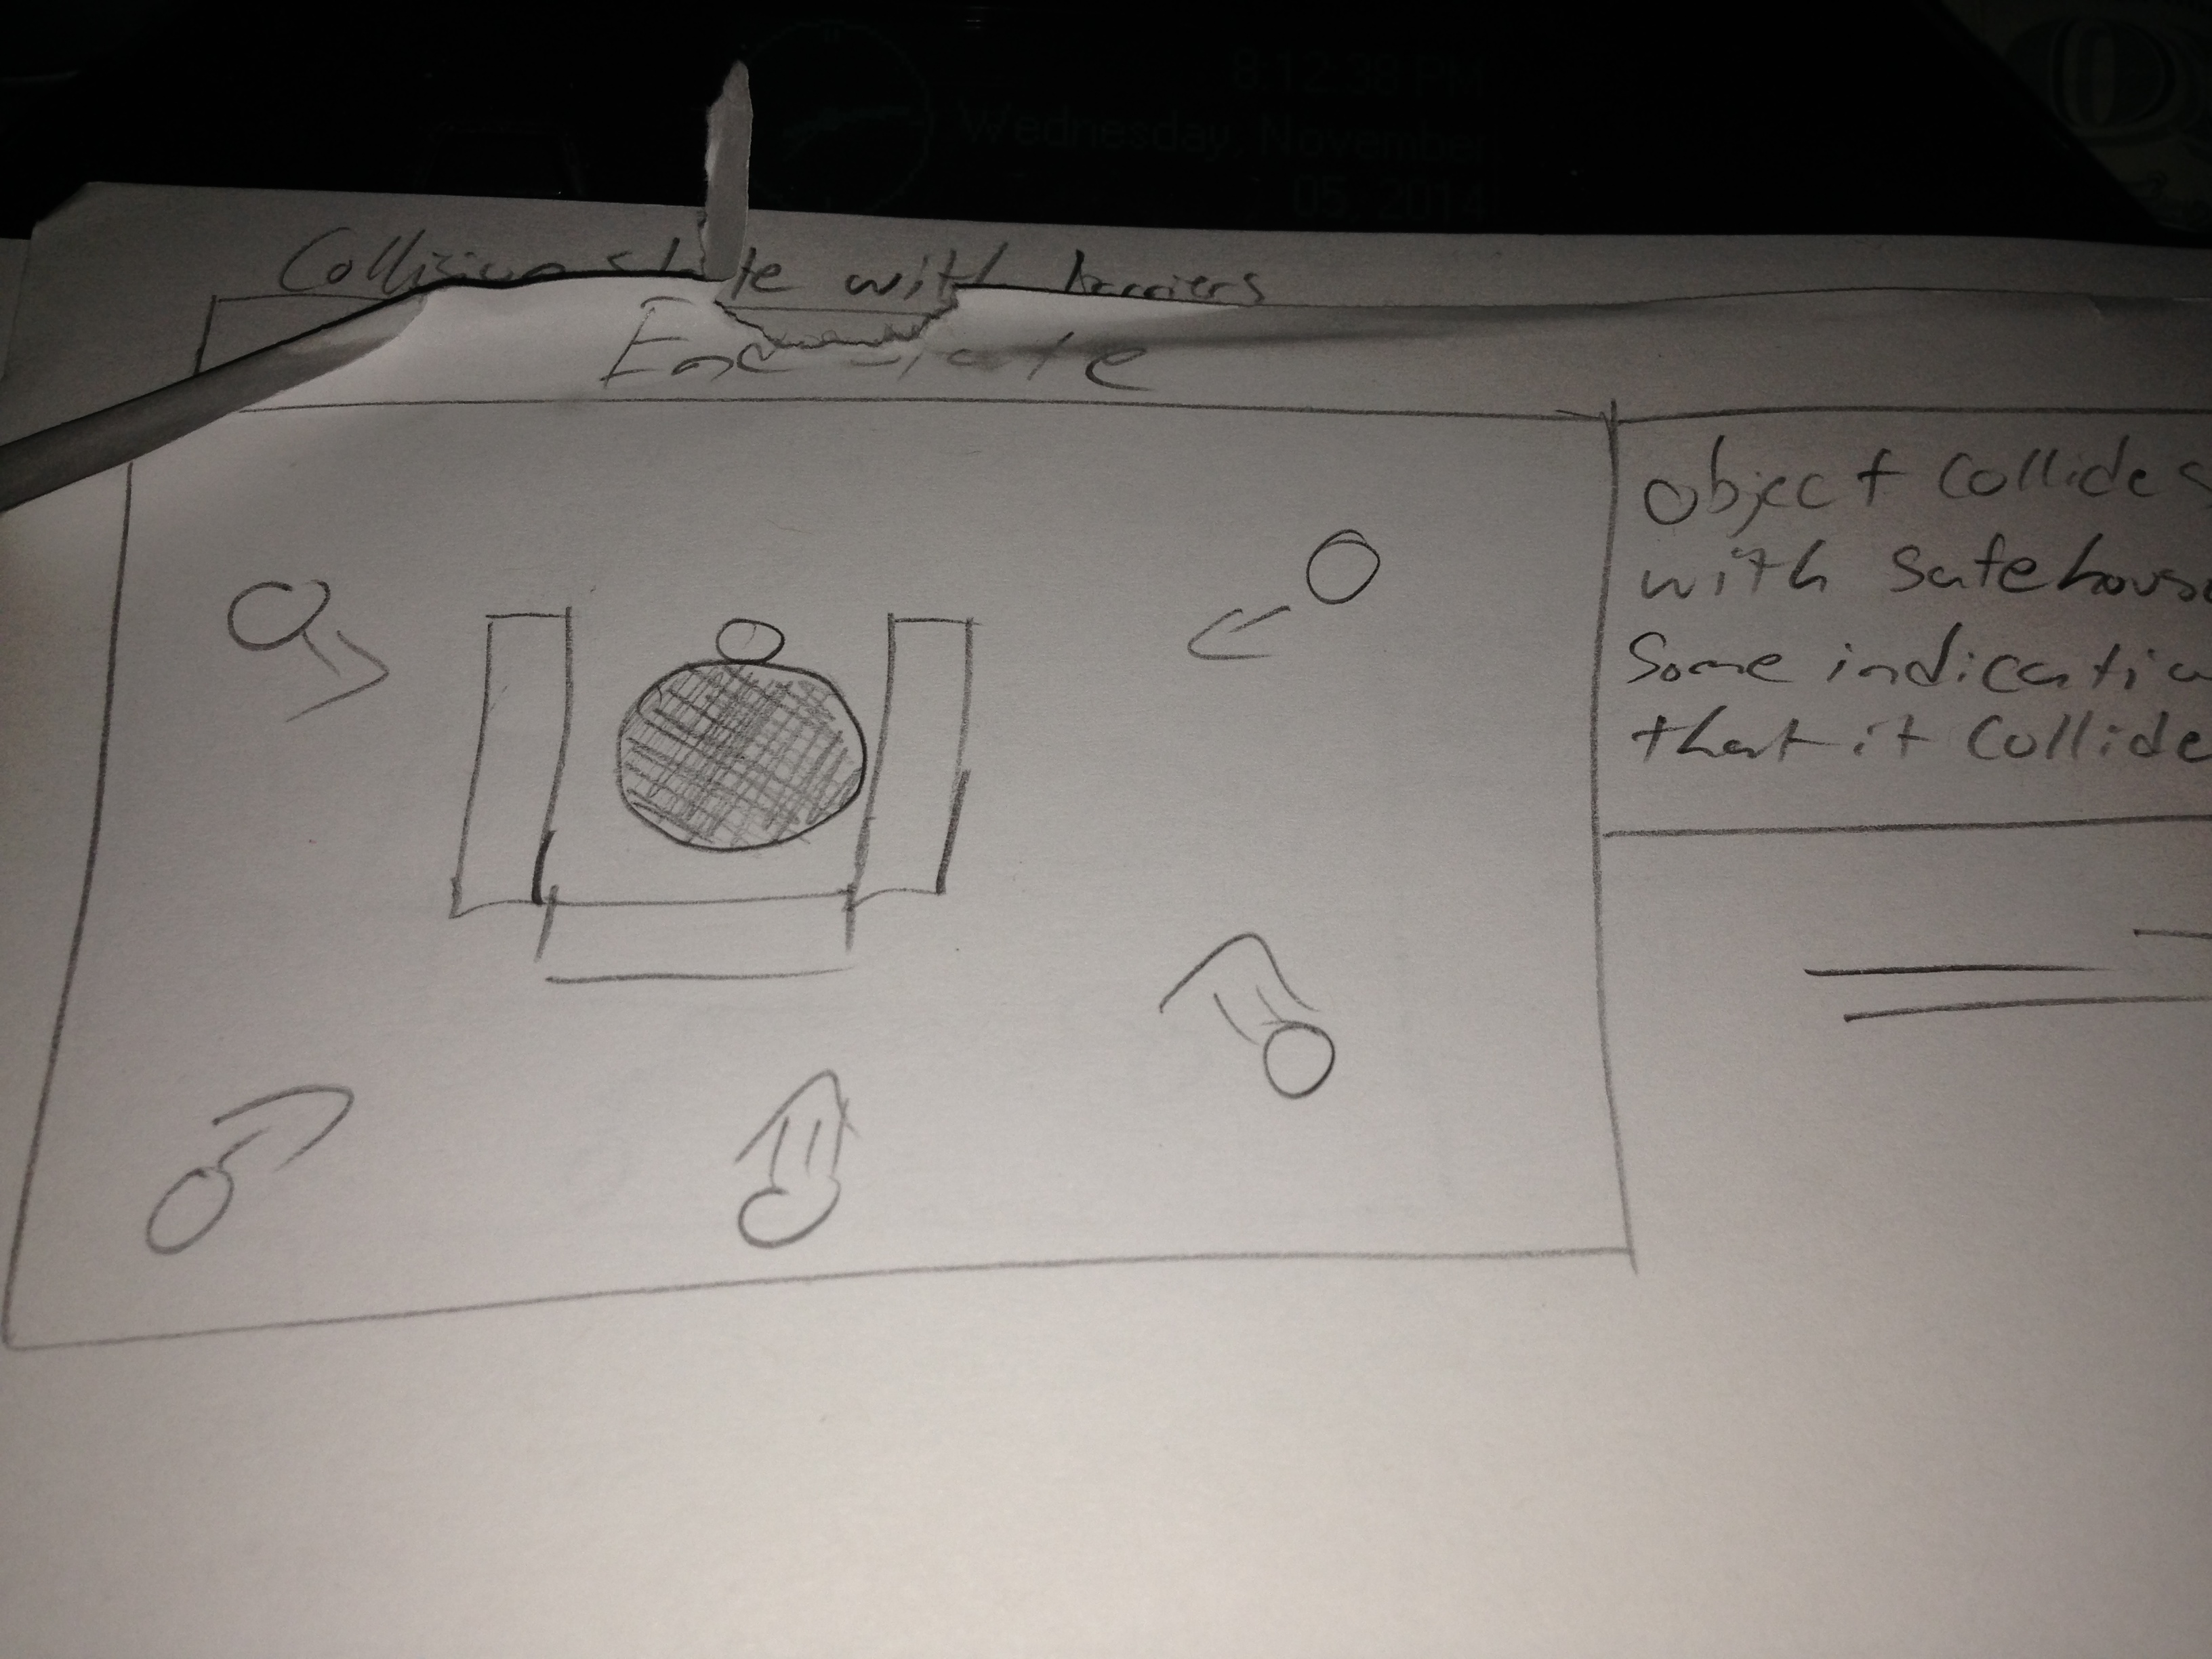 8:12:38 PM
Wednesday, November
05, 2014
Collision state with barriers
End state
object collides
with safehouse
Some indicatio
that it collide